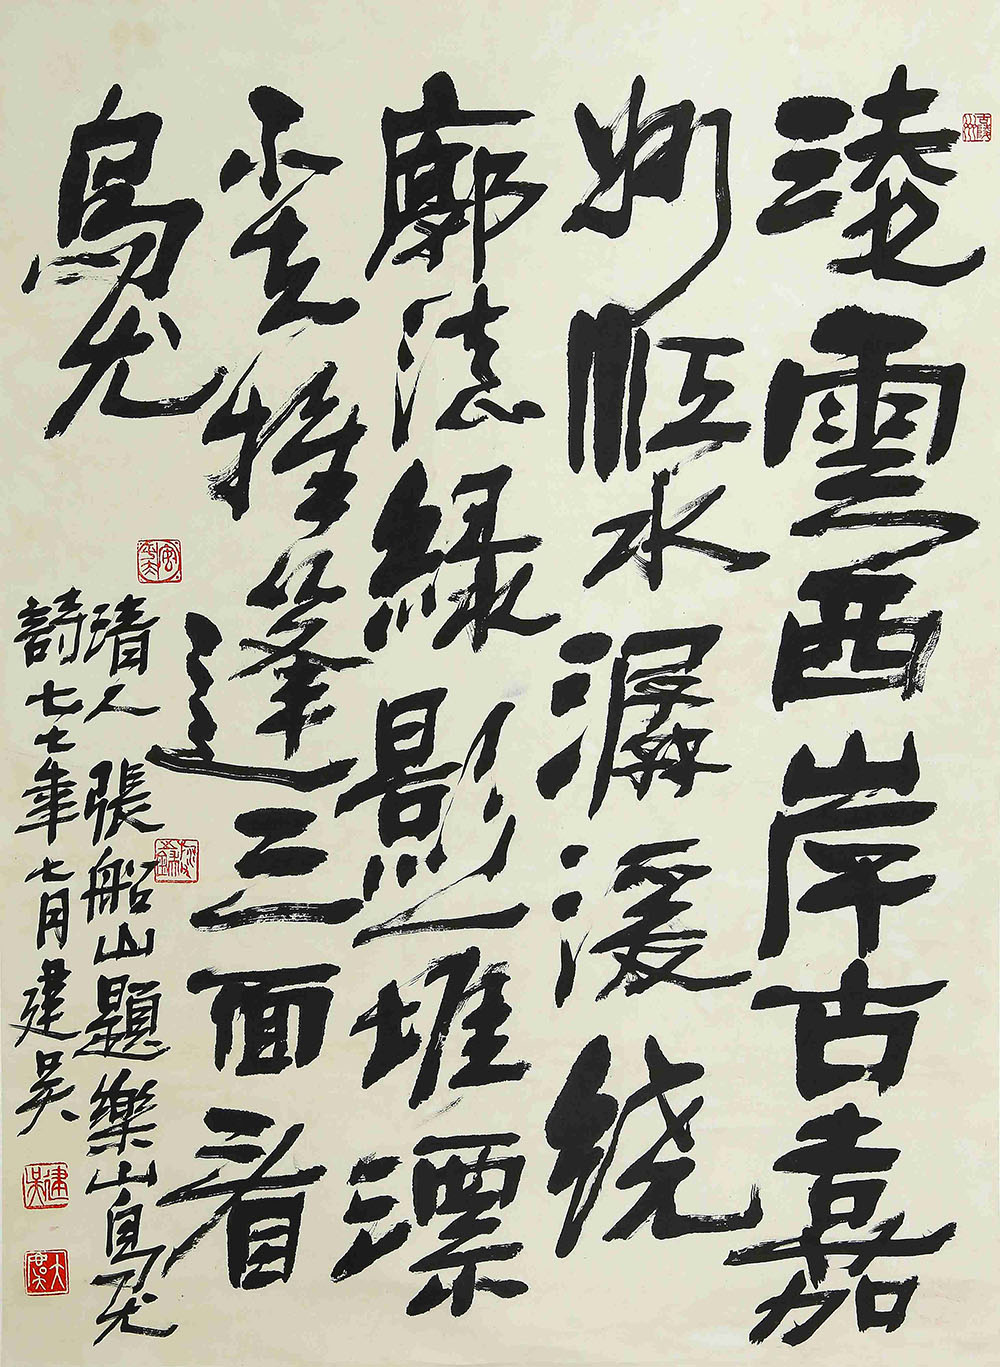 淩雲西岸古嘉
州江水潺湲绕
廓流綠影一堆漂
不去推篷三面看
烏尤
清人張船山題樂山烏尤
詩七七年七月建吳
建吳